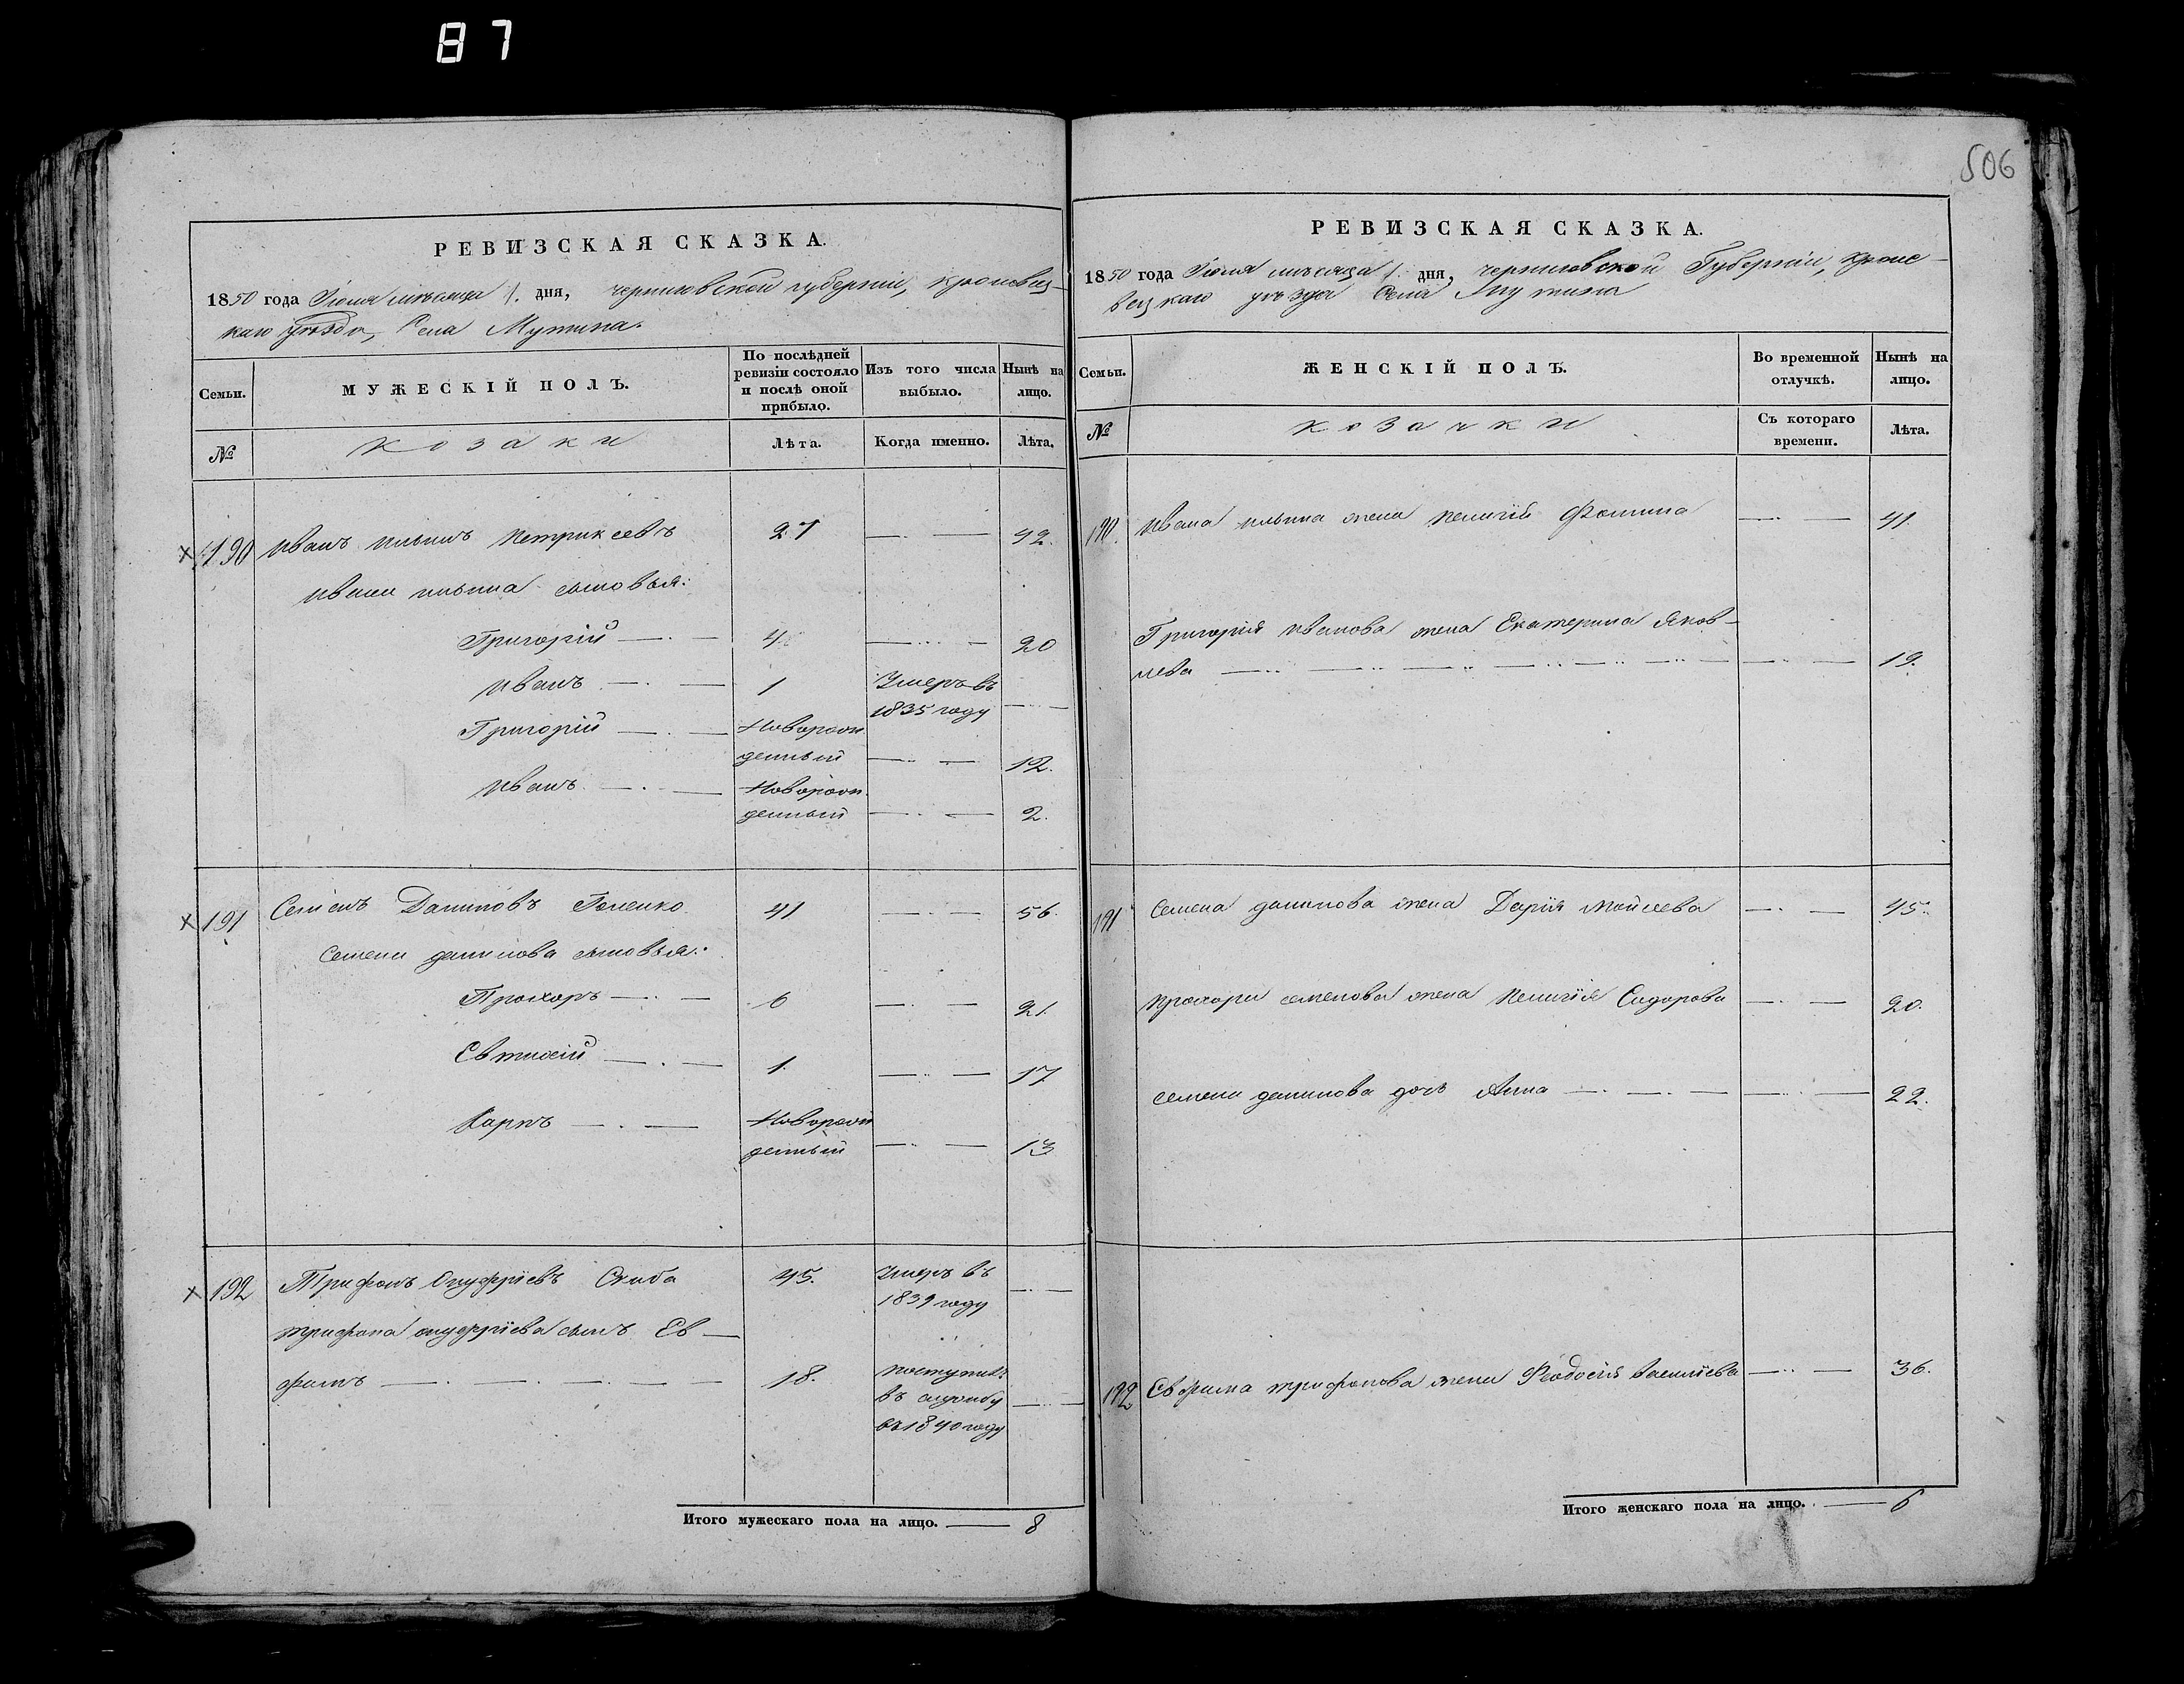 87
506
РЕВИЗСКАЯ СКАЗКА.
1850 года Іюля мѣсяца 1. дня, черниговской губерніи, кролевец-
каго уѣзда, Села Мутина.
Семьи.
МУЖЕСКІЙ ПОЛЪ.
По послѣдней ревизіи состояло и послѣ оной прибыло.
Изъ того числа выбыло.
Нынѣ на лицо.
№
козаки
Лѣта.
Когда именно.
Лѣта.
190 Иванъ Ильинъ Петриксевъ 27 42.
Ивана Ильина сыновья:
Григорій 4. 20
Иванъ 1 Умеръ въ
1835 году
Григорій Новорож
денный 12.
Иванъ Новорож
денный 2.
191 Семенъ Даниловъ Геленко 41 56.
Семена данилова сыновья:
Прохоръ 6 21.
Евтихій 1. 17
Карпъ Новорож
денный 13
192 Трифонъ Онуфріевъ Скиба 45. Умеръ въ
1839 году
трифона онуфріева сынъ Ев-
фимъ 18. поступил:
въ службу
въ 1840 году
Итого мужескаго пола на лицо. 8
РЕВИЗСКАЯ СКАЗКА.
1850 года Іюля мѣсяца 1. дня, черниговской Губерніи, Кроле-
вецкаго уѣзда Села Мутина
Семьи.
ЖЕНСКІЙ ПОЛЪ.
Во временной отлучкѣ.
Нынѣ на лицо.
№
козачки
Съ котораго времени.
Лѣта.
190. Ивана Ильина жена Пелагія Фомина 41.
Григорія Иванова жена Екатерина Яков-
лева 19.
191 Семена данилова жена Дарія Мойсеева 45.
Прохора семенова жена Пелагія Сидорова 20.
семена данилова дочь Анна 22.
192 Евфима трифонова жена Феодосія Васильева 36.
Итого женскаго пола на лицо. 6